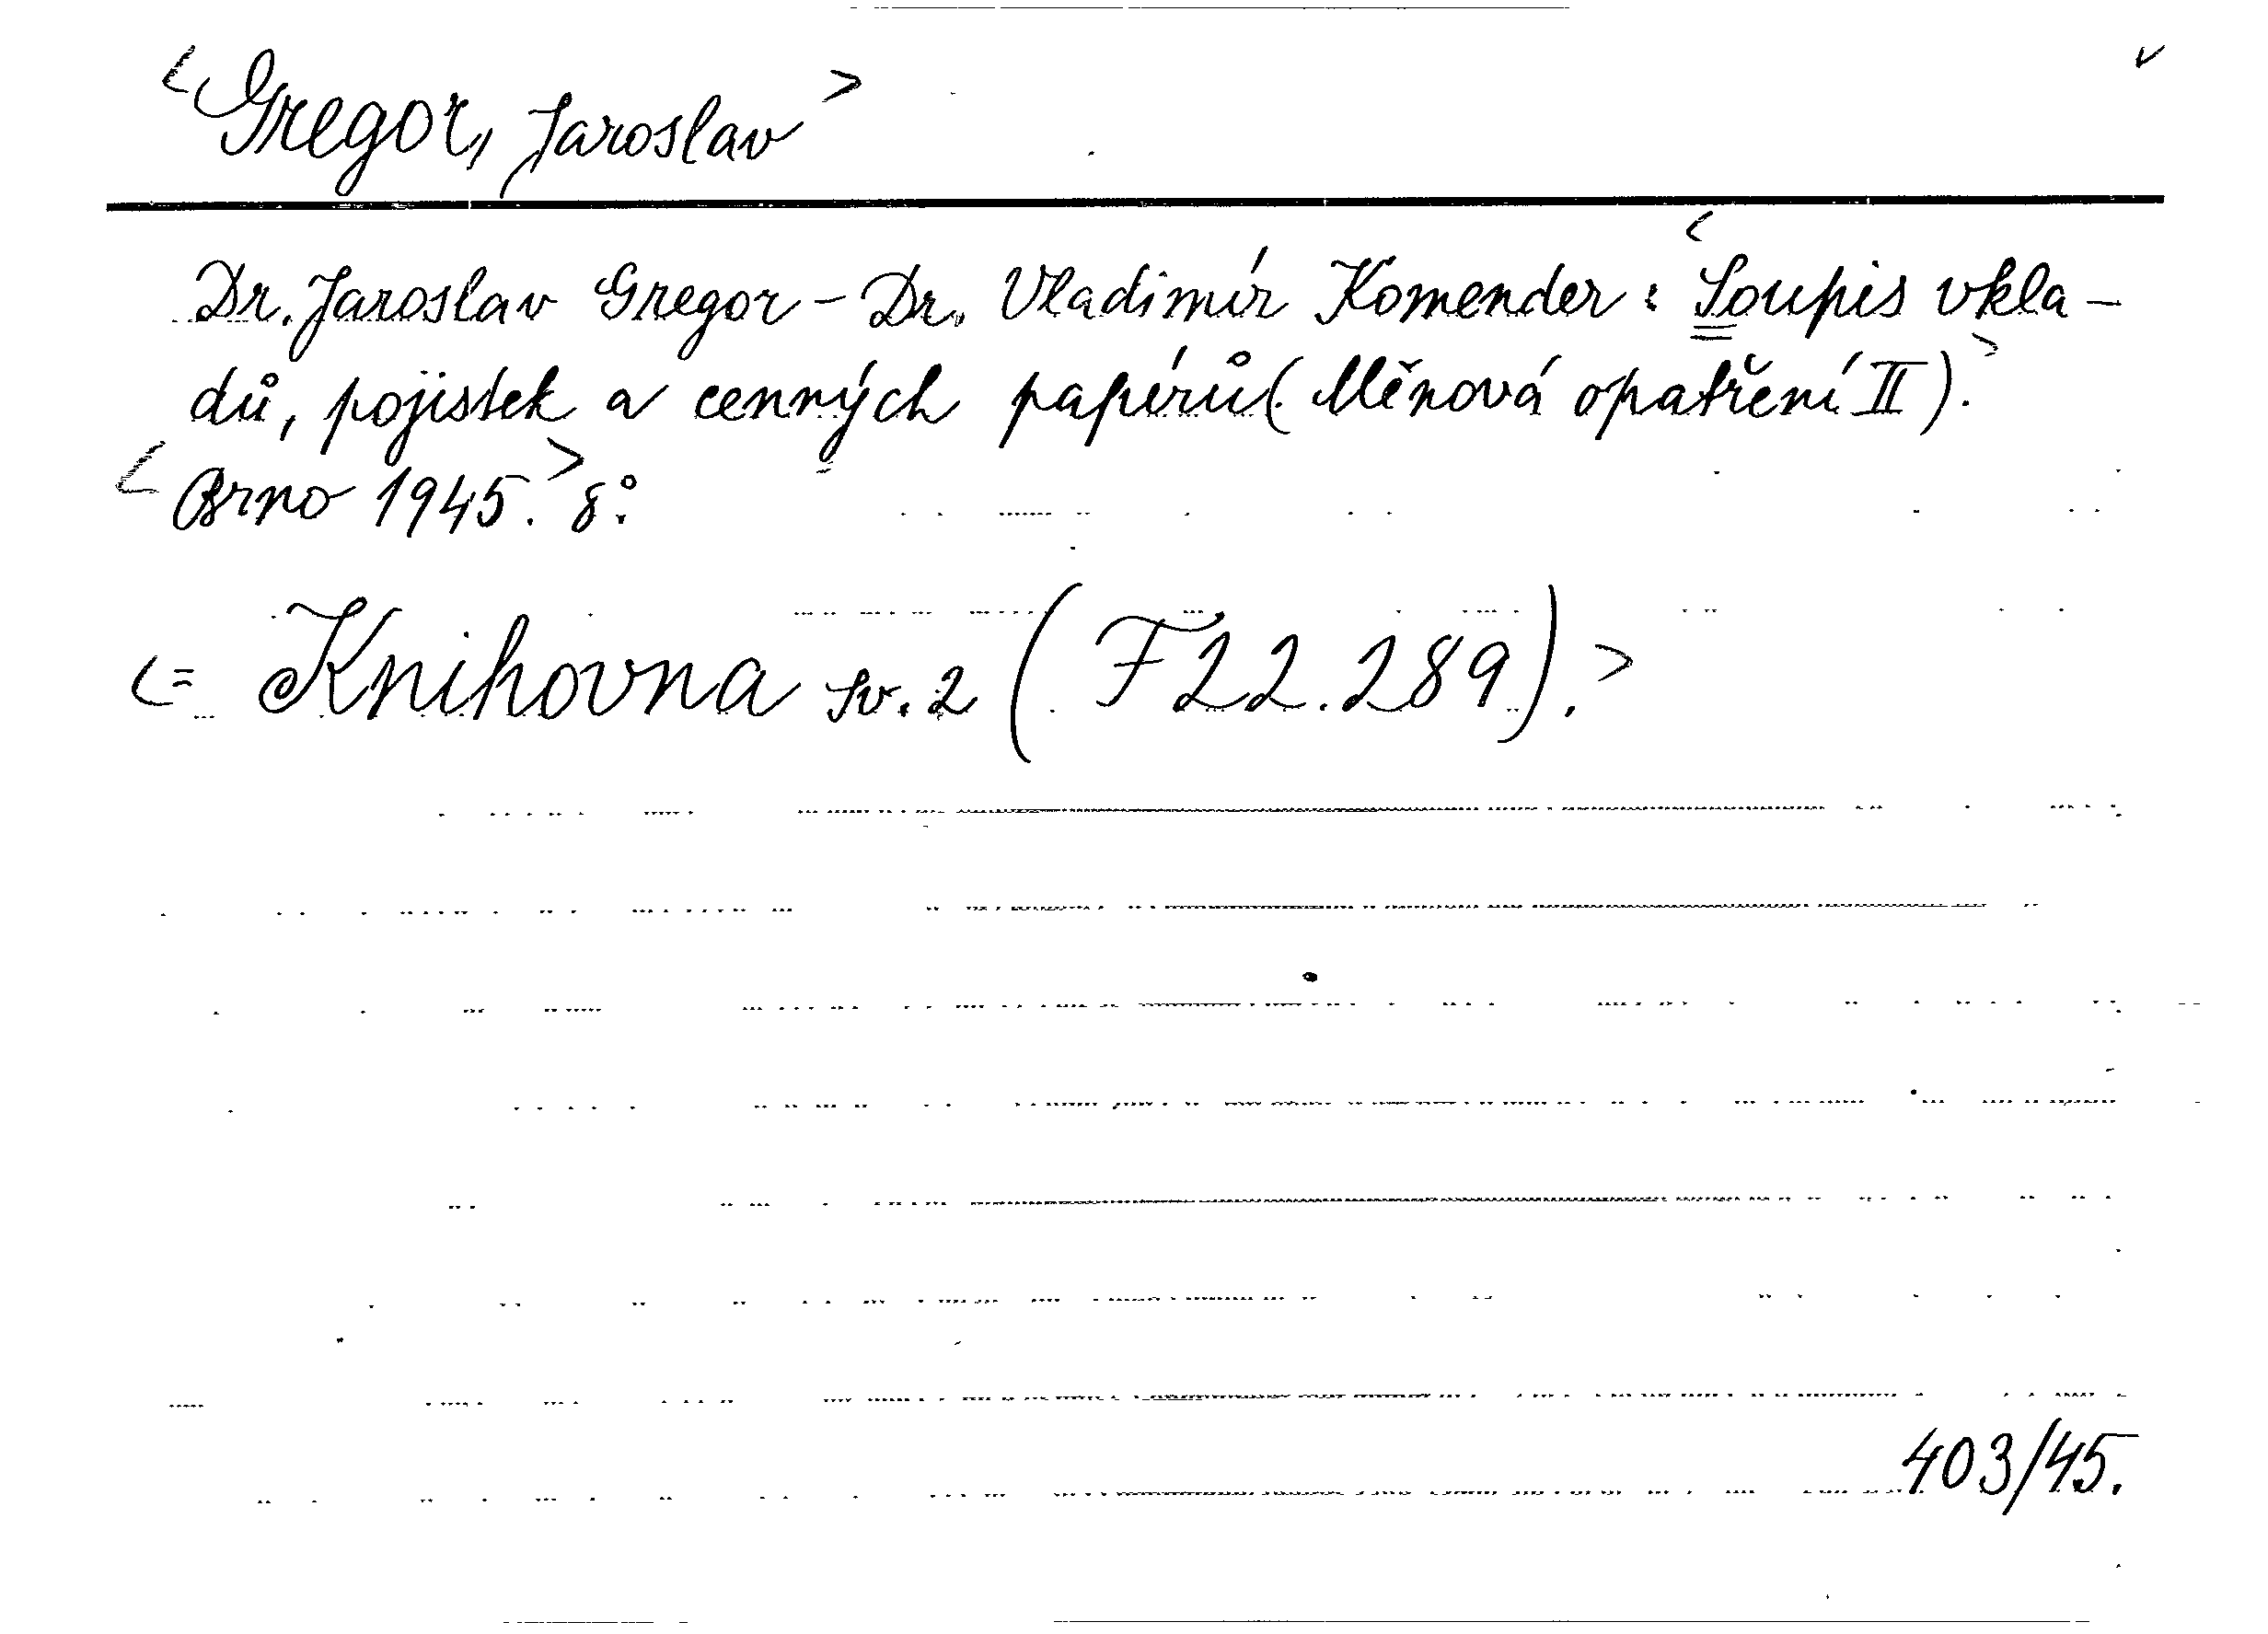 <Gregor, Jaroslav>
Dr. Jaroslav Gregor – Dr. Vladimír Komender : <Soupis vkla–
dů, pojistek a cenných papírů (Měnová opatření II).>
<Brno 1945.> 8°.
<= Knihovna sv. 2 (F 22.289).>
403/45.